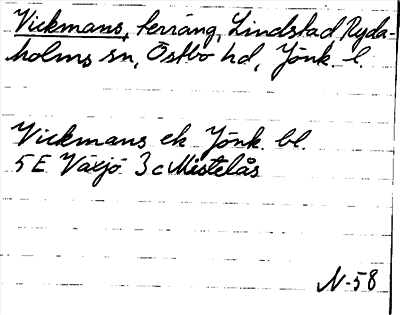 Vickmans, terräng, Lindstad Ryda-
holms sn, Östbo hd, Jönk. l.
Vickmans ek Jönk. bl.
5 E Växjö 3c Mistelås
N-58